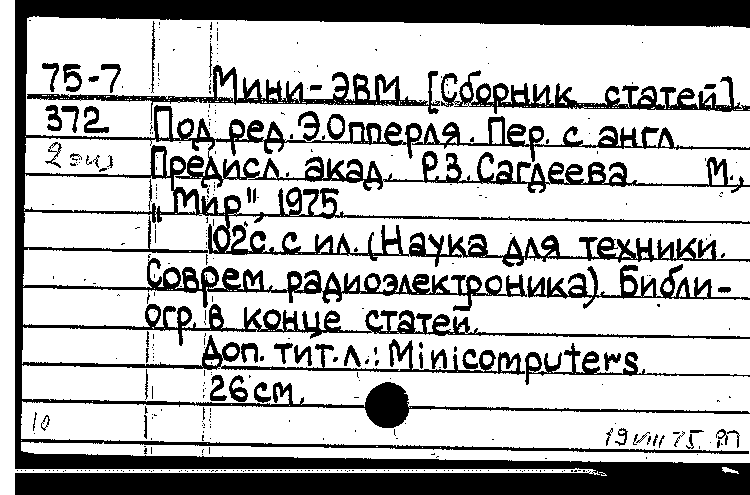 75-7 Мини-ЭВМ. [Сборник статей].
372 Под ред. Э.Опперля. Пер. с англ.
2 экз Предисл. акад. Р.З.Сагдеева. М.,
"Мир", 1975.
102с. с ил. (Наука для техники.
Соврем. радиоэлектроника). Библи-
огр. в конце статей.
Доп. тит. л.: Minicomputers.
26 см.
10 19 VIII 75